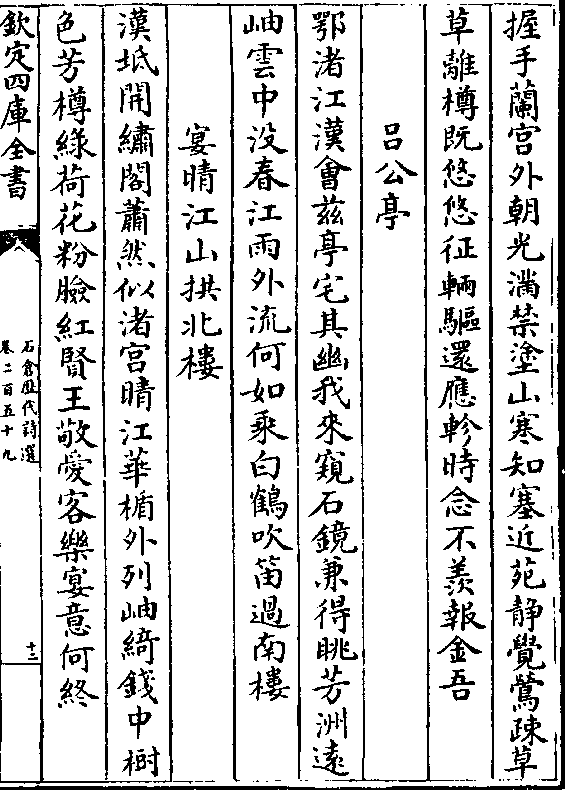 握手蘭宫外朝光满禁塗山寒知塞近苑静覺鶯疎草
草離樽既悠悠征輛驅還應軫時念不羨報金吾
吕公亭
鄂渚江漢會兹亭宅其幽我來窺石鏡兼得眺芳洲遠
岫雲中没春江雨外流何如乘白鶴吹笛過南樓
宴晴江山拱北樓
漢坻開繡閣蕭然似渚宫晴江華楯外列岫綺錢中樹
色芳樽緑荷花粉臉紅賢王敬愛客樂宴意何終
欽定四庫全書
石倉歷代詩選
卷二百五十九
十二